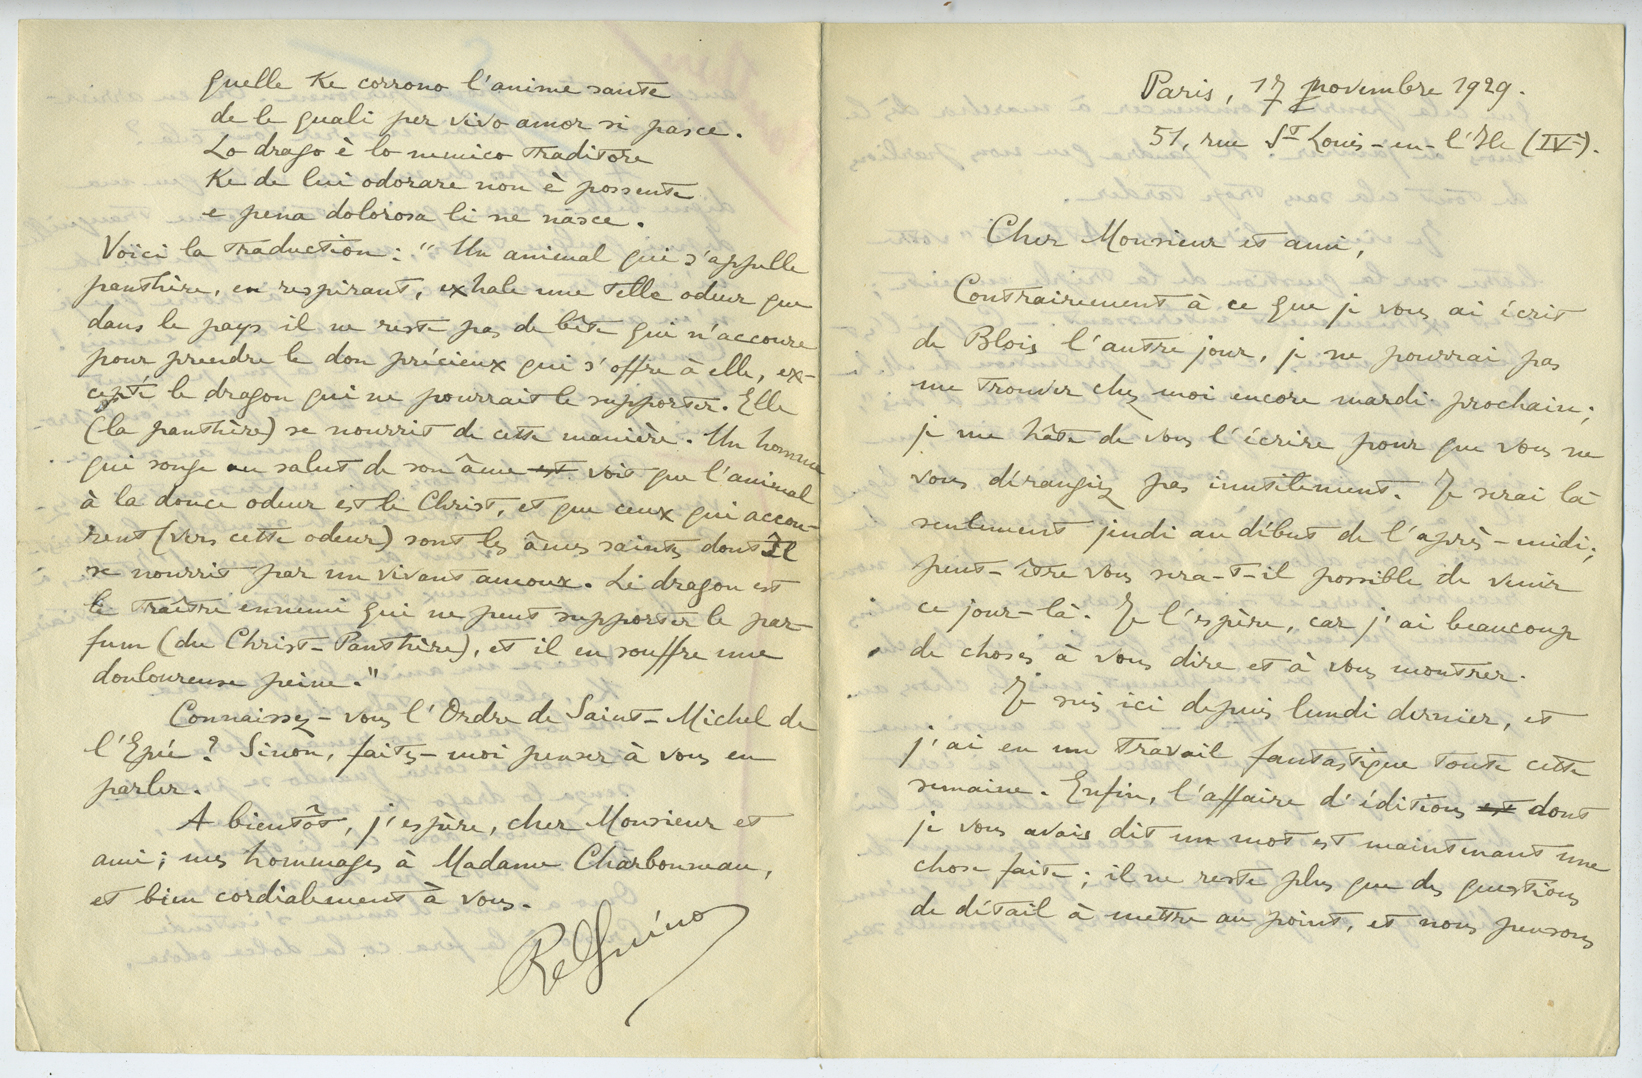 Paris, 17 novembre 1929.
51, rue St Louis-en-l'Ile (IVe).
Cher Monsieur et ami,
Contrairement à ce que je vous ai écrit
de Blois l'autre jour, je ne pourrai pas
me trouver chez moi encore mardi prochain;
je me hâte de vous l'écrire pour que vous ne
vous dérangiez pas inutilement. Je serai là
seulement jeudi au début de l'après-midi;
peut-être vous sera-t-il possible de venir
ce jour-là. Je l'espère, car j'ai beaucoup
de choses à vous dire et à vous montrer.
Je suis ici depuis lundi dernier, et
j'ai eu un travail fantastique toute cette
semaine. Enfin, l'affaire d'éditions est dont
je vous avais dit un mot est maintenant une
chose faite; il ne reste plus que des questions
de détail à mettre au point, et nous pensons
quelle Ke corrono l'anime sante
de le quali per vivo amor si pasce.
Lo drago è lo nemico traditore
Ke de lui odorare non è possente
e pena dolorosa li ne nasce.
Voici la traduction: "Un animal qui s'appelle
panthère, en respirant, exhale une telle odeur que
dans le pays il ne reste pas de bête qui n'accoure
pour prendre le don précieux qui s'offre à elle, ex-
cepté le dragon qui ne pourrait le supporter. Elle
(la panthère) se nourrit de cette manière. Un homme
qui songe au salut de son âme est voit que l'animal
à la douce odeur est le Christ, et que ceux qui accou-
rent (vers cette odeur) sont les âmes saintes dont Il
se nourrit par un vivant amour. Le dragon est
le traître ennemi qui ne peut supporter le par-
fum (du Christ-Panthère), et il en souffre une
douloureuse peine."
Connaissez-vous l'Ordre de Saint-Michel de
l'Epée? Sinon, faites-moi penser à vous en
parler.
A bientôt, j'espère, cher Monsieur et
ami; mes hommages à Madame Charbonneau,
et bien cordialement à vous.
René Guénon